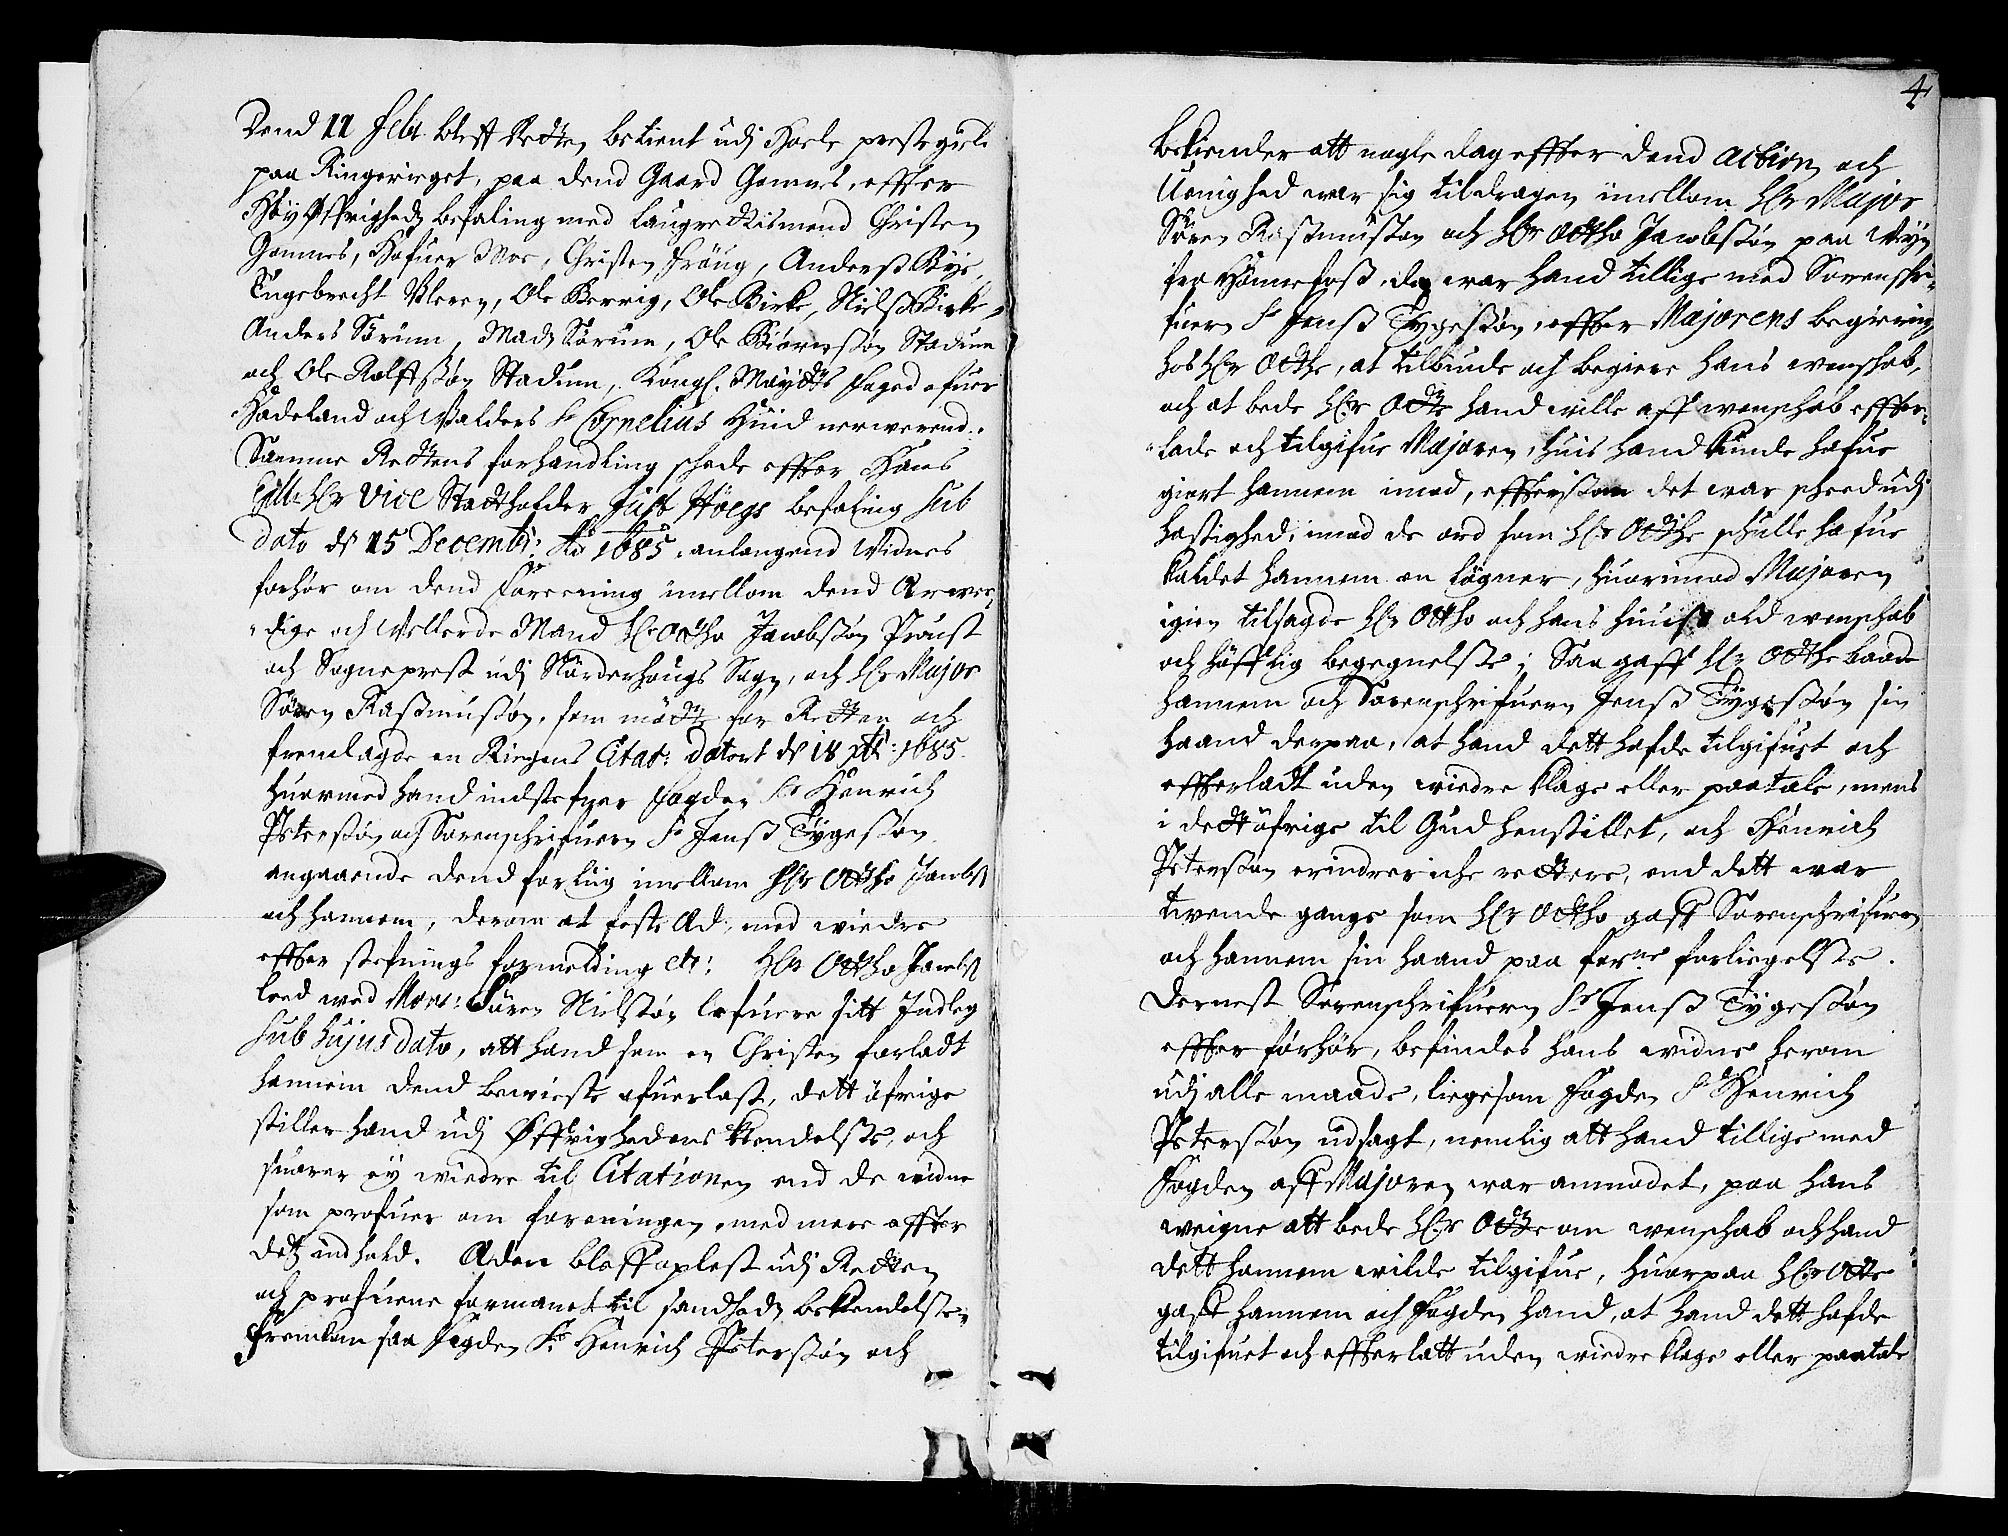 Dend 11 Febr. bleff Retten betient udj Hoele prestegield
paa Ringeriget, paa dend Gaard Gomnes, effter
Høy Øffrigheds befaling med Laugrettismend Christen
Gomnes, Hafuer Moe, Christen Frøug, Anderss Bye,
Engebrecht Veleren, Ole Berrig, Ole Birke, Nielss Birke,
Anders Sørum, Madz Sørum, Ole Biørnssøn Stadum
och Ole Rolffssøn Stadum, Kongl. Maytts Foged ofuer
Hadeland och Valders Sr Cornelius Hiud nerwerend.
Samme Rettens forhandling schede effter Hans
Excell: Hr Vice Stadtholder Just Høegs befaling sub
dato ds 15 Decembr: Ao 1685. anlangend Widnes
forhør om dend Foreening imellom dend Ærwer¸
¸dige och Wellerde Mand Hr Ottho Jacobssøn Proust
och Sogneprest udj Norderhougs Sogn, och Hr Major
Søren Rassmussøn, som møtte for Retten och
fremlagde en Riegens Citat: datert ds 18 xbr: 1685.
huormed hand indstefner Fogden Sr Henrich
Peterssøn och Sorenschrifueren Sr Jenss Tygessøn
angaaende dend forliig imellom Hr Ottho Jacobss:
och hannem, derom at feste Æd, med wiedre
effter stefnings formelding etc: Hr Ottho Jacobss:
loed wed Mons: Søren Nielssøn lefuere sitt Indleg
sub hujus dato, att hand som en Christen forladt
hannem dend beviiste ofuerlast, dett øfrige
stiller hand udj Øffrighedens Kiendelsse, och
suarer ey wiedre til Citationen end de widne
som profuer om foreningen, med mere effter
detz indhold. Æden bleff oplest udj Retten
och profuene formanet til sandheds bekiendelsse,
fremkom saa Fogden Sr Henrich Peterssøn och
4
bekiender att nogle dag effter dend action och
Uenighed war sig tildragen imellom Hr Major
Søren Rassmussøn och Hr Ottho Jacobssøn paa Weyen
fra Hønnefoss, da war hand tillige med Sorenschri¸
fueren Sr Jenss Tygessøn, effter Majorens begiering
hos Hr Otthe, at tilbiude och begiere hans wenschab,
och at bede Hr Otthe hand wille aff wenschab effter¸
¸lade och tilgifue Majoren, huis hand kunde hafue
giort hannem imod, effterssom det war scheed udj
hastighed, imod de ord som Hr Otthe schulle hafue
kaldet hannem en løgner, huorimod Majoren
igien tilsagde Hr Ottho och hans huuss ald wenschab
och høfflig begegnelsse; Saa gaff Hr Otthe baade
hannem och Sorenschrifueren Jenss Tygessøn sin
haand derpaa, at hand dett hafde tilgifuet och
effterladt uden wiedre klage eller paatale, mens
i dett øfrige til Gud henstillet, och Henrich
Peterssøn erindrer iche rettere, end dett war
twende gange som Hr Ottho gaff Sorenschrifueren
och hannem sin haand paa forne forligelsse.
Dernest Sorenschrifueren Sr Jenss Tygessøn
effter forhør, befindes hans widne herom
udj alle maade, liegesom Fogden Sr Henrich
Peterssøn udsagt, nemlig att hand tillige med
Fogden aff Majoren war anmodet, paa hans
weigne att bede Hr Otte om wenschab och hand
dett hannem wilde tilgifue, huorpaa Hr Otte
gaff hannem och Fogden hand, at hand dett hafde
tilgifuet och effterlatt uden wiedre klage eller paatale